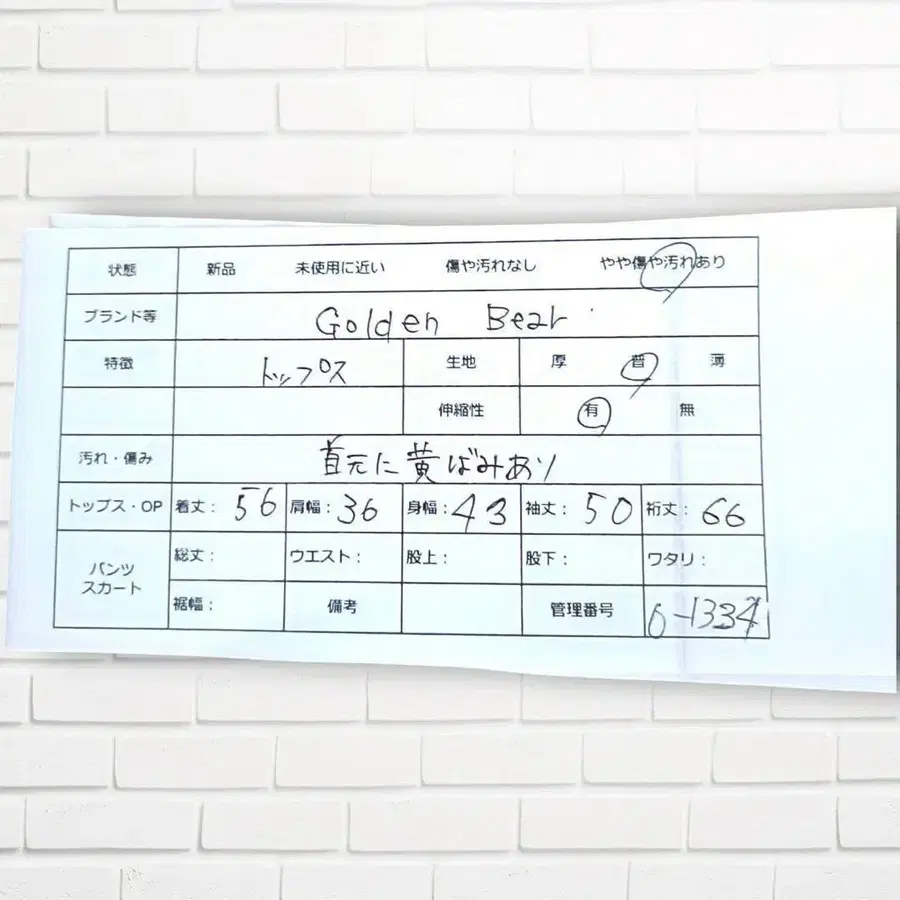 状態 新品 未使用に近い 傷や汚れなし やや傷や汚れあり
ブランド等 Golden Bear
特徴 トップス 生地 厚 普 薄
伸縮性 有 無
汚れ・傷み 首元に黄ばみあり
トップス・OP 着丈: 56 肩幅: 36 身幅: 43 袖丈: 50 裄丈: 66
パンツ スカート 総丈: ウエスト: 股上: 股下: ワタリ:
裾幅: 備考 管理番号 0-1334